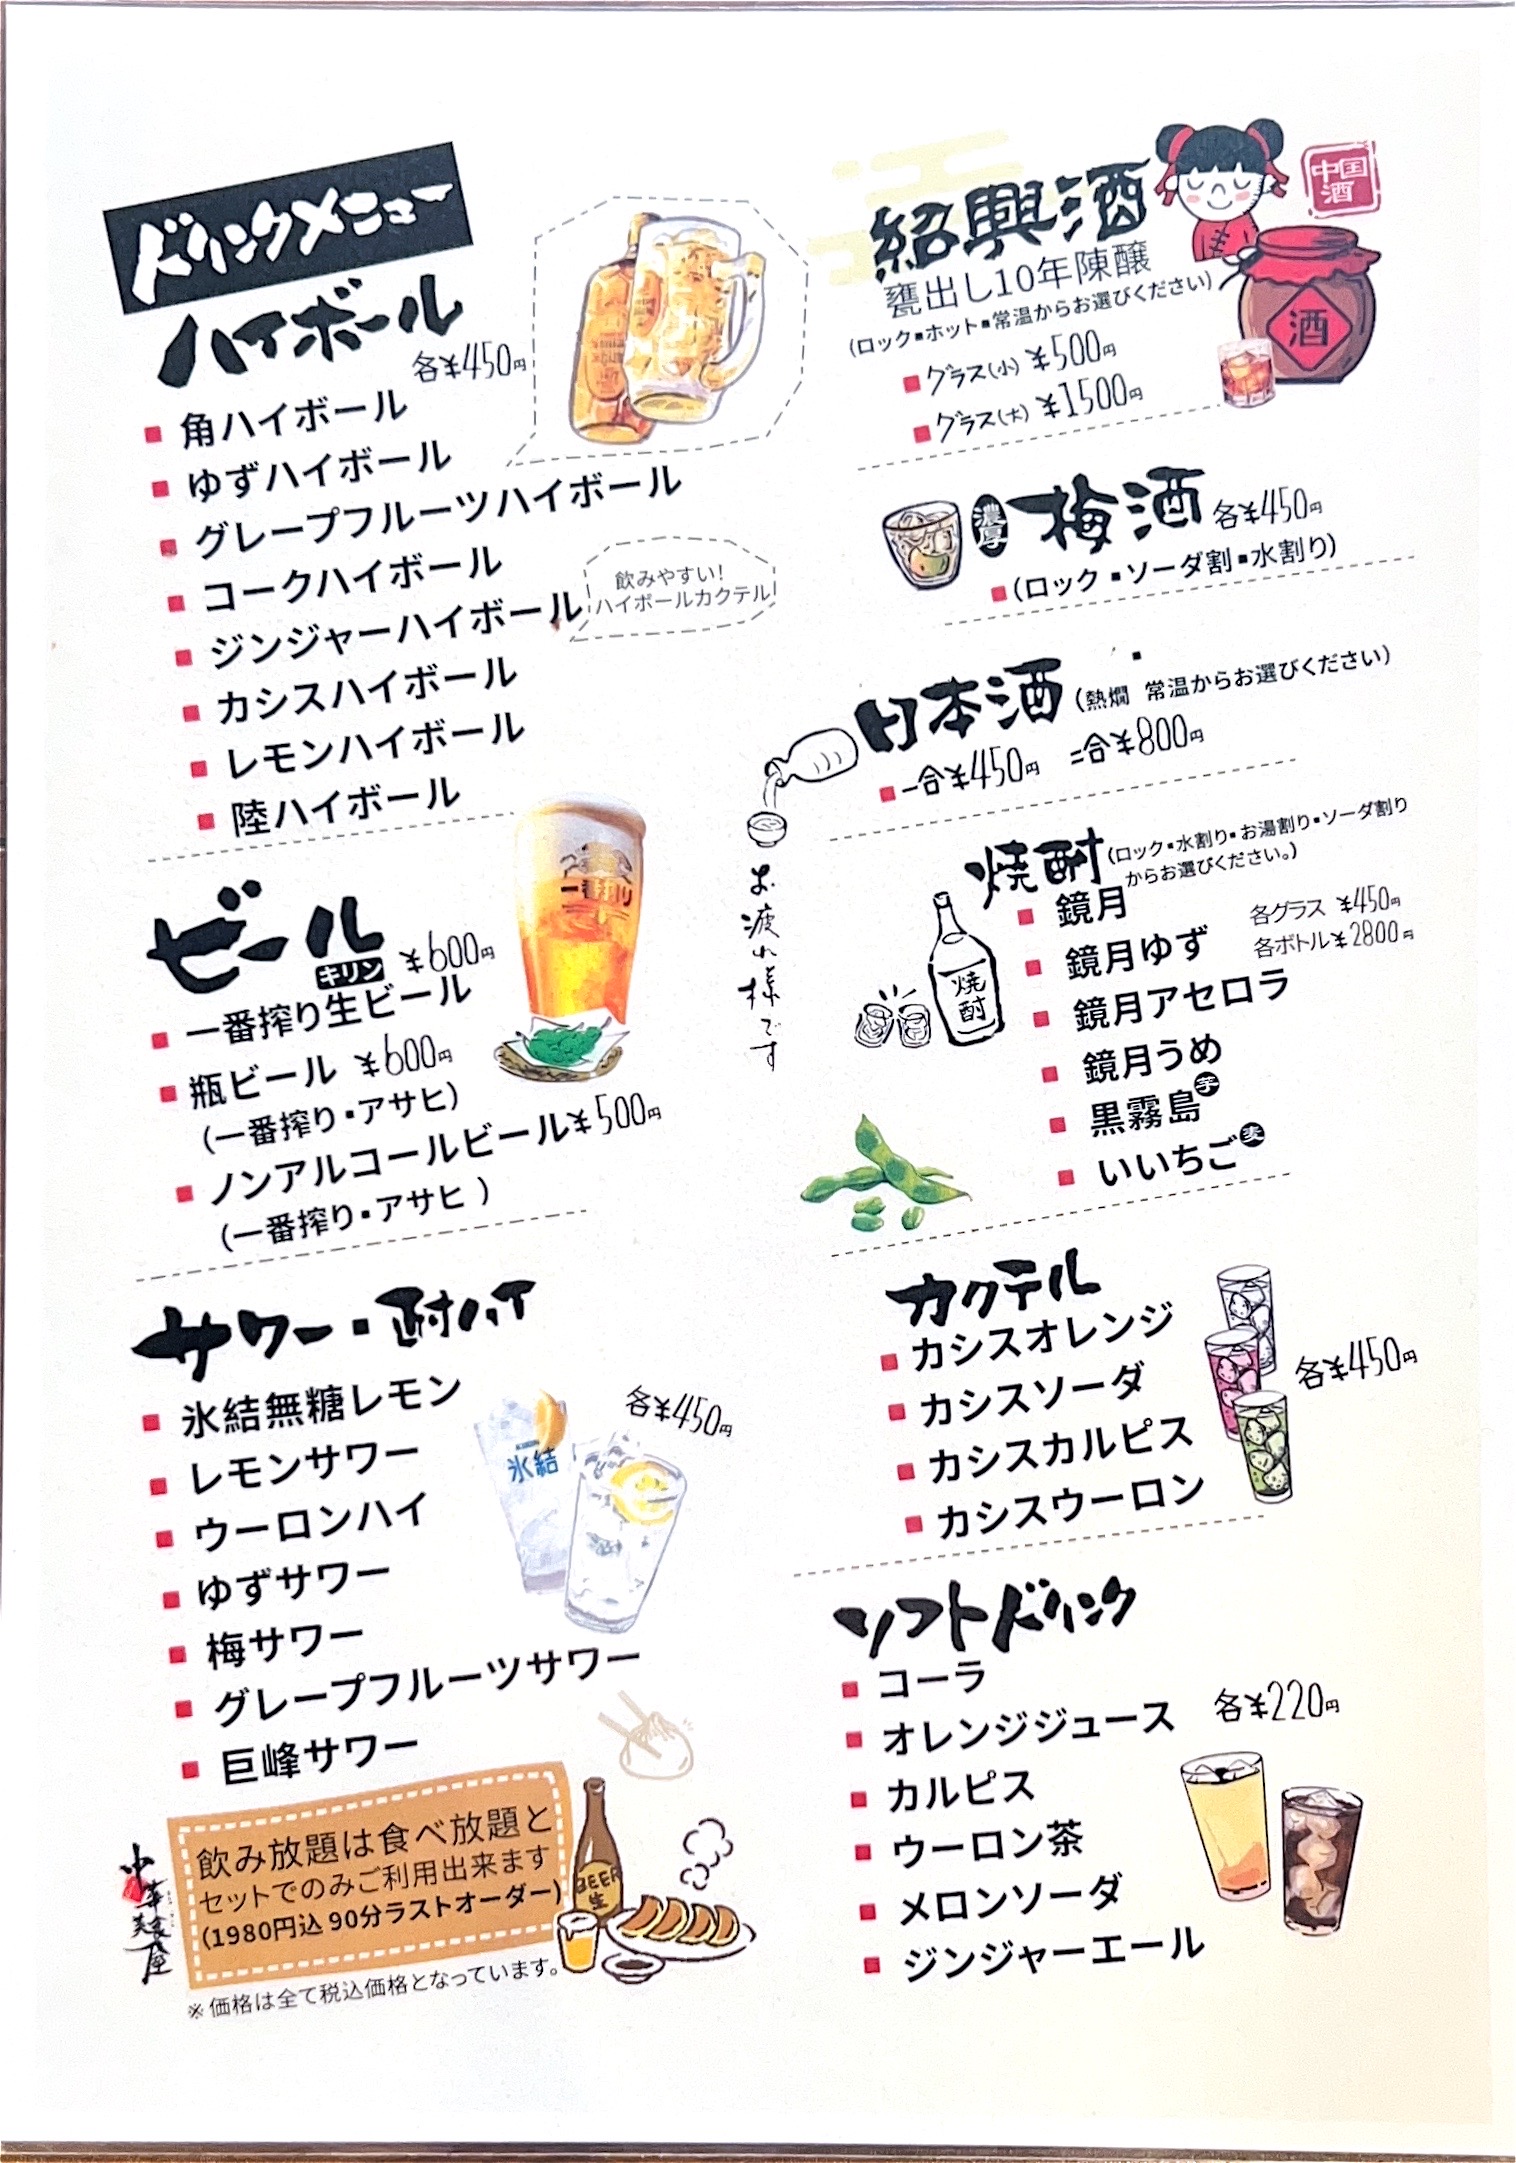 ドリンクメニュー
ハイボール
各¥450円
角ハイボール
ゆずハイボール
グレープフルーツハイボール
コークハイボール
ジンジャーハイボール
飲みやすい!
ハイボールカクテル!
カシスハイボール
レモンハイボール
陸ハイボール
ビール
キリン ¥600円
一番搾り生ビール
一番搾り
瓶ビール ¥600円
(一番搾り・アサヒ)
ノンアルコールビール¥500円
(一番搾り・アサヒ )
サワー・酎ハイ
各¥450円
氷結無糖レモン
レモンサワー
ウーロンハイ
ゆずサワー
梅サワー
グレープフルーツサワー
巨峰サワー
氷結
飲み放題は食べ放題と
セットでのみご利用出来ます
(1980円込 90分ラストオーダー)
BEER
生
※価格は全て税込価格となっています。
紹興酒
中国
酒
甕出し10年陳醸
(ロック・ホット・常温からお選びください)
グラス(小) ¥500円
グラス(大) ¥1500円
酒
濃厚 梅酒 各¥450円
(ロック・ソーダ割・水割り)
日本酒 (熱燗 常温からお選びください)
一合¥450円 二合¥800円
お疲れ様です
焼酎 (ロック・水割り・お湯割り・ソーダ割り
からお選びください。)
鏡月
各グラス ¥450円
各ボトル¥2800円
鏡月ゆず
鏡月アセロラ
鏡月うめ
黒霧島 芋
いいちご 麦
焼酎
カクテル
カシスオレンジ
カシスソーダ
カシスカルピス
カシスウーロン
各¥450円
ソフトドリンク
コーラ
オレンジジュース
各¥220円
カルピス
ウーロン茶
メロンソーダ
ジンジャーエール